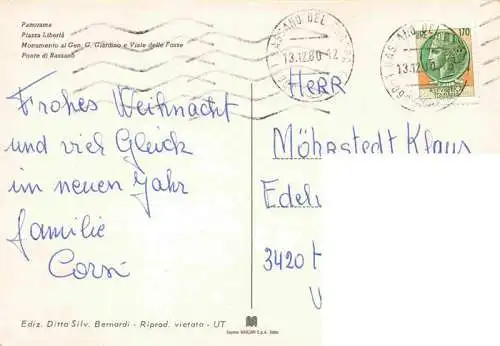 Panorama
Piazza Libertà
Monumento al Gen. G. Giardino e Viale delle Fosse
Ponte di Bassano
BASSANO DEL
13.12.80
13.12.80
170
Herr
Frohes Weihnacht
und viel Glück
im neuen Jahr
familie
Corsi
Möhrstedt Klaus
Edel
3420
Ediz. Ditta Silv. Bernardi - Riprod. vietata - UT